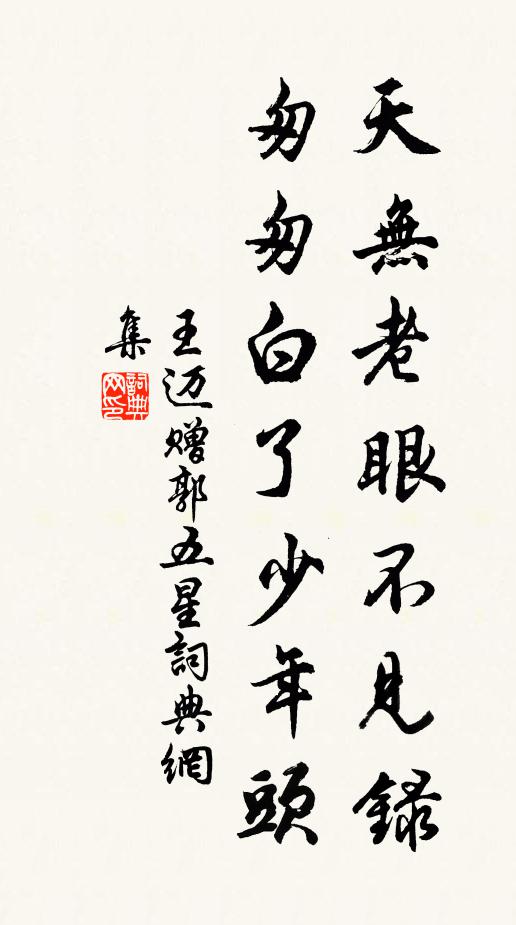 天無老眼不見錄
匆匆白了少年頭
王迈赠郭五星詞典網
集
詞典
网印